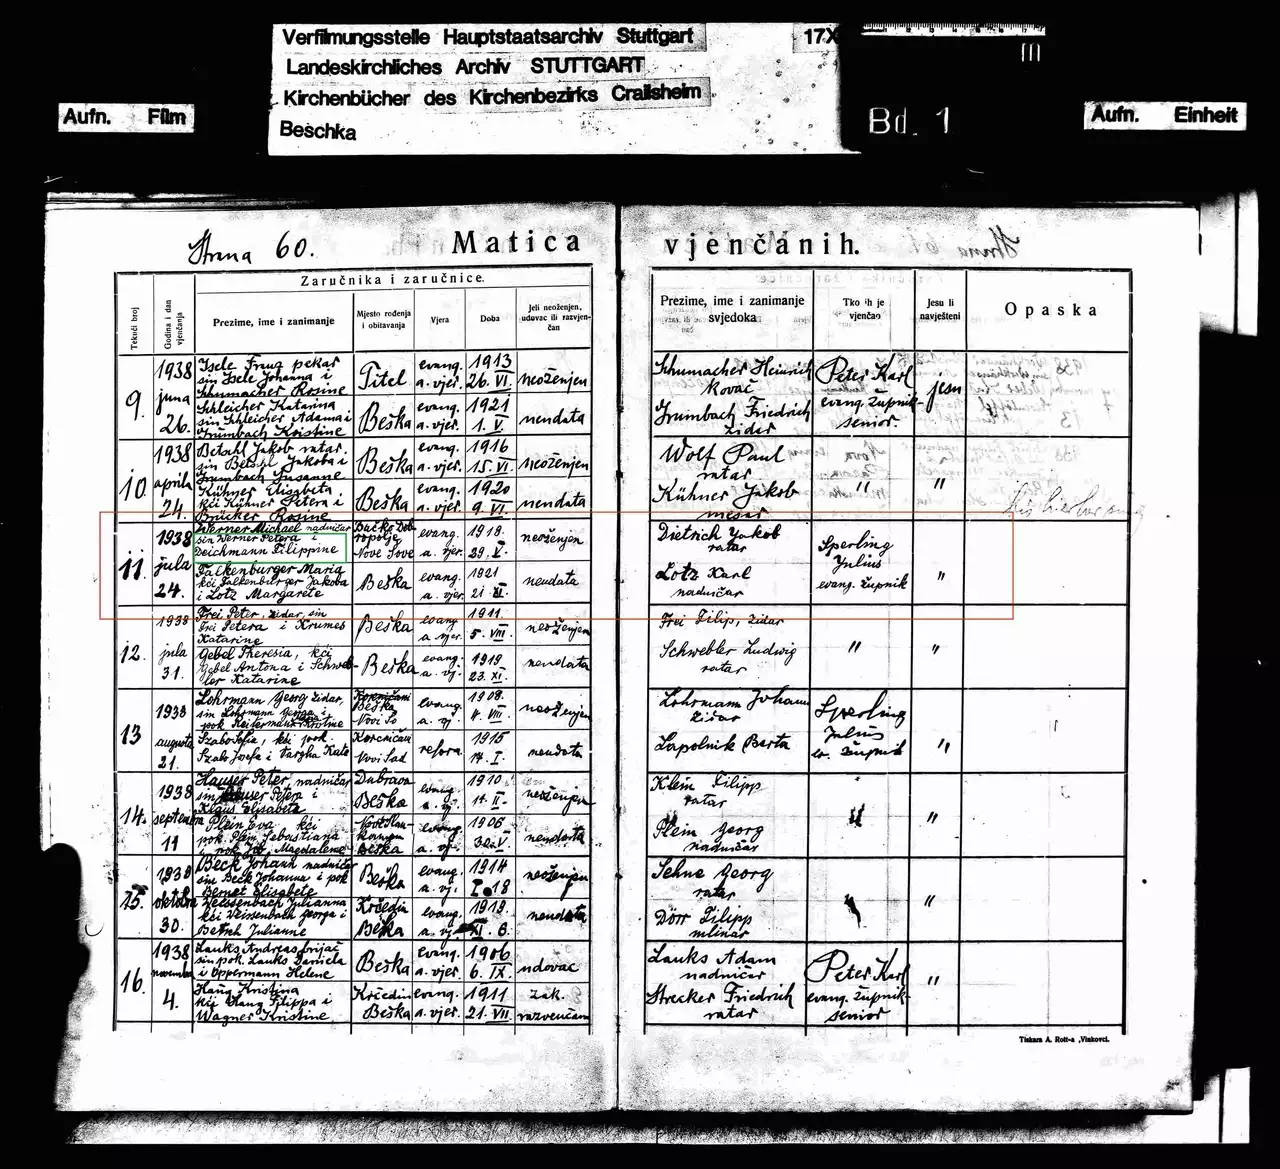 Verfilmungsstelle Hauptstaatsarchiv Stuttgart
17X
Landeskirchliches Archiv STUTTGART
Kirchenbücher des Kirchenbezirks Crailsheim
Beschka
Aufn. Film
Bd. 1
Aufn. Einheit
Strana 60.
Matica vjenčanih.
Tekući broj
Godina i dan vjenčanja
Zaručnika i zaručnice.
Prezime, ime i zanimanje
Mjesto rođenja i obitavanja
Vjera
Doba
Jeli neoženjen, udovac ili razvjenčan
Prezime, ime i zanimanje svjedoka
Tko ih je vjenčao
Jesu li navješteni
Opaska
9.
1938
juna
26.
Isele Franz pekar
sin Isele Johanna i
Schumacher Rosine
Titel
evang.
a. vjer.
1913
26. VI.
neoženjen
Schleicher Katarina
sin Schleicher Adama i
Grumbach Kristine
Beška
evang.
a. vjer.
1921
1. V.
neudata
Schumacher Heinrich
kovač
Grumbach Friedrich
židar
Peter Karl
evang. župnik
senior.
jesu
10.
1938
aprila
24.
Betschl Jakob ratar.
sin Betschl Jakoba i
Grumbach Susanne
Beška
evang.
a. vjer.
1916
15. VI.
neoženjen
Kühner Elisabeta
kći Kühner Petera i
Brücker Rosine
Beška
evang.
a. vjer.
1920
9. VI.
neudata
Wolf Paul
ratar
Kühner Jakob
mesar
"
"
11.
1938
jula
24.
Werner Michael nadničar
sin Werner Petera i
Deichmann Filippine
Bačko Dobropolje
Nove Šove
evang.
a. vjer.
1918.
29. V.
neoženjen
Falkenburger Maria
kći Falkenburger Jakoba
i Lotz Margarete
Beška
evang.
a. vjer.
1921
21. XI.
neudata
Dietrich Jakob
ratar
Lotz Karl
nadničar
Sperling
Julius
evang. župnik
"
12.
1938
jula
31.
Frei Peter, židar, sin
Frei Petera i Krumes
Katarine
Beška
evang.
a. vjer.
1911.
5. VIII.
neoženjen
Gebel Theresia, kći
Gebel Antona i Schwebler Katarine
Beška
evang.
a. vj.
1919
23. XI.
neudata
Frei Filip, židar
Schwebler Ludwig
ratar
"
"
13
1938
augusta
21.
Lohrmann Georg židar,
sin Lohrmann Georga i
pok Reitermann Kristine
Beška
Novi
evang.
a. vj.
1908.
4. VIII.
neoženjen
Szabo Sofia, kći pok
Szabo Josefa i Vargha Kate
Novi Sad
refora.
1915
14. I.
neudata
Lohrmann Johann
židar
Lapolnik Berta
Sperling
Julius
ev. župnik
"
14.
1938
septembra
11
Hauser Peter, nadničar
sin Hauser Petera i
Klaus Elisabeta
Dubrava
Beška
evang.
a. vj.
1910
11. II.
neoženjen
Plein Eva kći
pok. Plein Sebastiana
Magdalene
Beška
evang.
a. vj.
1906
30. V.
neudata
Klein Filipp
ratar
Plein Georg
nadničar
"
"
15.
1938
oktobra
30.
Beck Johann nadničar
sin Beck Johanna i pok
Bernet Elisabete
Beška
evang.
a. vj.
1914
I. 18
neoženjen
Weissenbach Julianna
kći Weissenbach Georga i
Julianne
Krčedin
Beška
evang.
a. vj.
1919.
XI. 6.
neudata
Sehne Georg
ratar
Dörr Filipp
mlinar
"
16.
1938
novembra
4.
Lauks Andreas brijač
sin pok. Lauks Daniela
i Oppermann Helene
Beška
evang.
a. vjer.
1906
6. IX.
udovac
Haug Kristina
kći Haug Filippa i
Wagner Kristine
Krčedin
Beška
evang.
a. vjer.
1911
21. VII.
zak.
razvenčana
Lauks Adam
nadničar
Strecker Friedrich
ratar
Peter Karl
evang. župnik
senior
"
Tiskara A. Rott-a, Vinkovci.